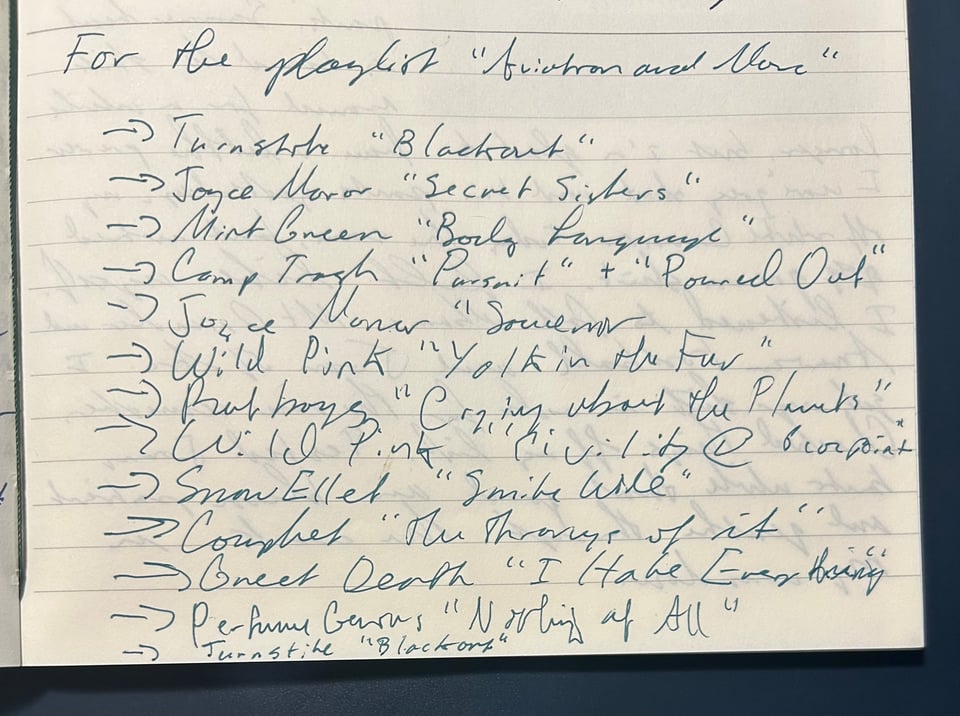 For the playlist "Aviation and War"
→ Turnstile "Blackout"
→ Joyce Manor "Secret Sisters"
→ Mint Green "Body Language"
→ Camp Trash "Pursuit" + "Poured Out"
→ Joyce Manor "Souvenir
→ Wild Pink "Yolk in the Fur"
→ Ratboys "Crying about the Planets"
→ Wild Pink "Civility @
→ Snow Ellet "
→ Couplet "The Throngs of it"
→ Greet Death "I Hate Everything"
→ Perfume Genius "Nothing at All"
→ Turnstile "Blackout"